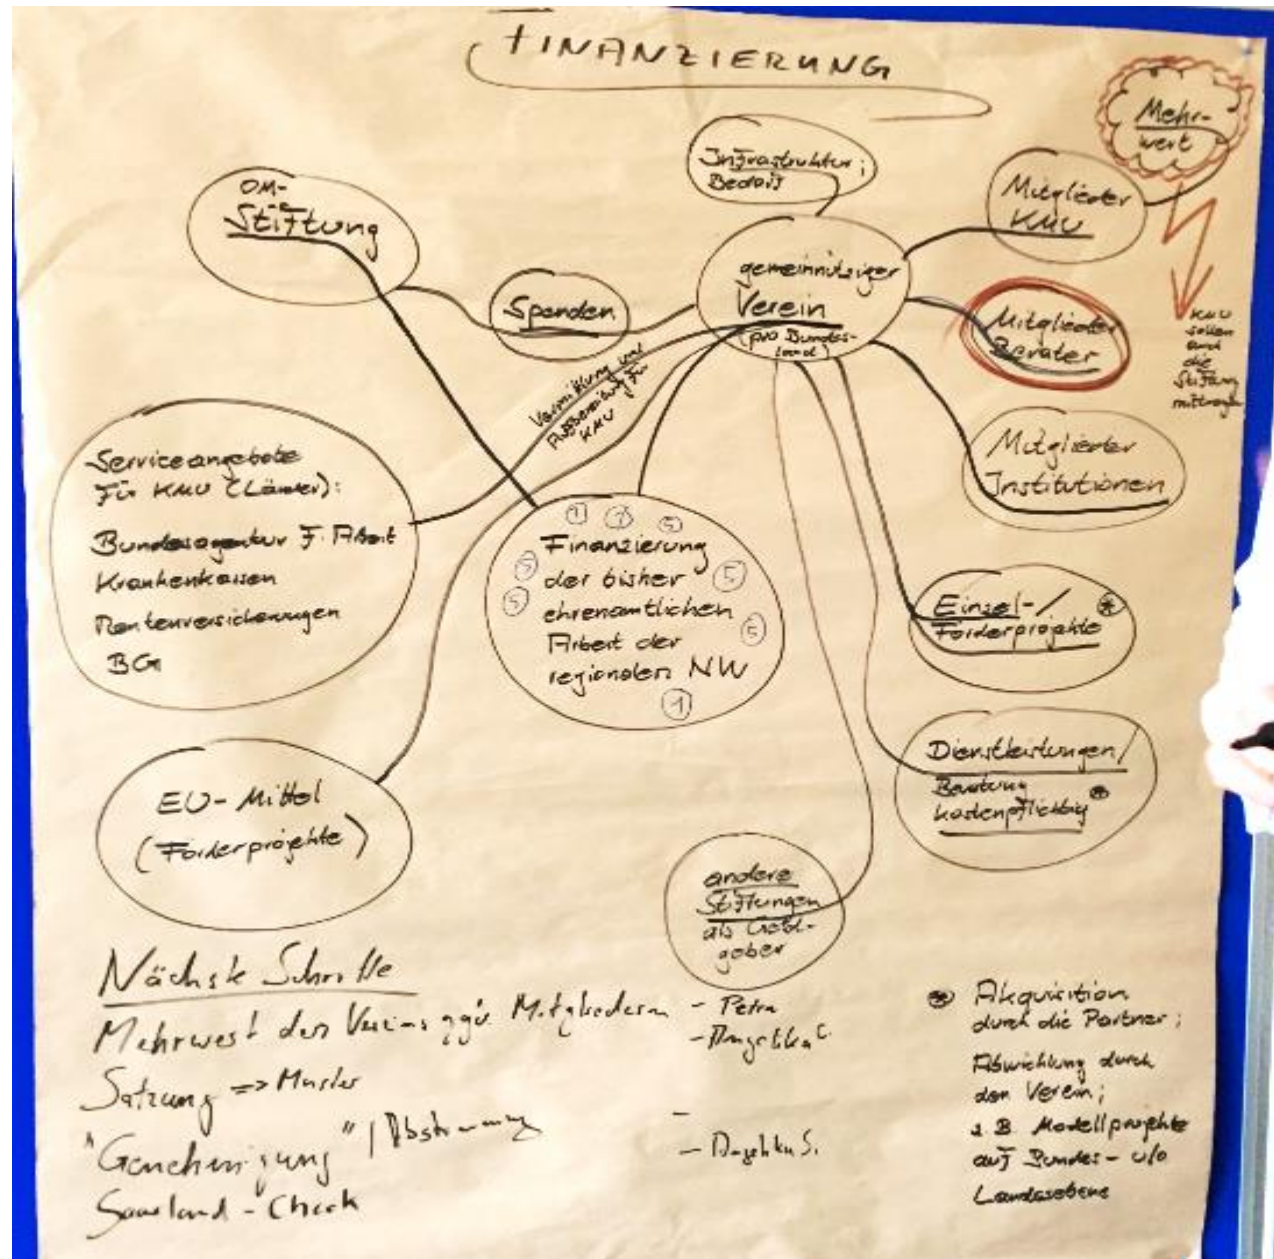 FINANZIERUNG
Mehr-
wert
Infrastruktur;
Bedarf
Mitglieder
KMU
OM-
Stiftung
gemeinnütziger
Verein
(pro Bundes-
land)
Spenden
Mitglieder
Berater
KMU
sollen
auch
die
Stiftung
mittragen
Vermittlung und
für
KMU
Mitglieder
Institutionen
Serviceangebote
für KMU (Länder):
Bundesagentur f. Arbeit
Krankenkassen
Rentenversicherungen
BG
Finanzierung
der bisher
ehrenamtlichen
Arbeit der
regionalen NW
1
Einzel-/
Förderprojekte *
Dienstleistungen/
Beratung
kostenpflichtig *
EU-Mittel
(Förderprojekte)
andere
Stiftungen
als Geld-
geber
Nächste Schritte
Mehrwert des Vereins ggü. Mitgliedern
- Petra
Satzung => Muster
"Genehmigung" / Abstimmung
Saarland-Check
* Akquisition
durch die Partner;
Abwicklung durch
den Verein;
z.B. Modellprojekte
auf Bundes- u/o
Landesebene